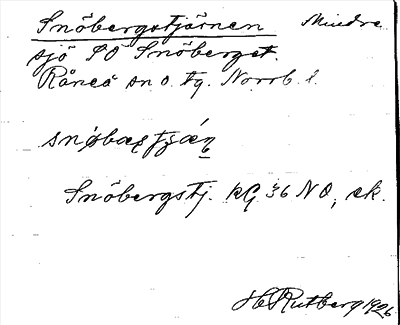 Snöbergstjärnen Mindre
sjö SO Snöberget.
Råneå sn o. tg. Norrb. l.
snøbæstjǽṇ
Snöbergstj. kG 36 NO, ek.
H Rutberg 1926